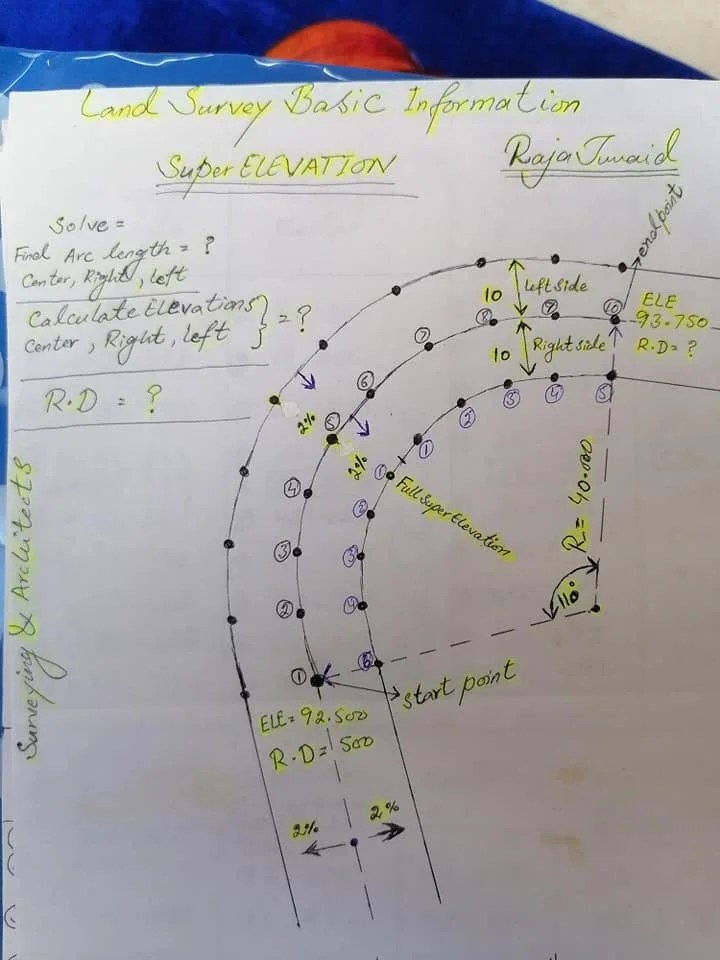 Land Survey Basic Information
Super ELEVATION
Raja Junaid
Solve =
Find Arc length = ?
Center, Right, left
Calculate Elevations
Center, Right, left } = ?
R.D = ?
Surveying & Architects
end point
10 Left side
10 Right side
ELE
93.750
R.D = ?
⑧ ⑨ ⑩
⑦
⑥
⑤
④
③
②
①
① ② ③ ④ ⑤
① ② ③ ④ ⑤
2%
2%
Full Super Elevation
R = 40.000
110°
start point
ELE = 92.500
R.D = 500
2% 2%